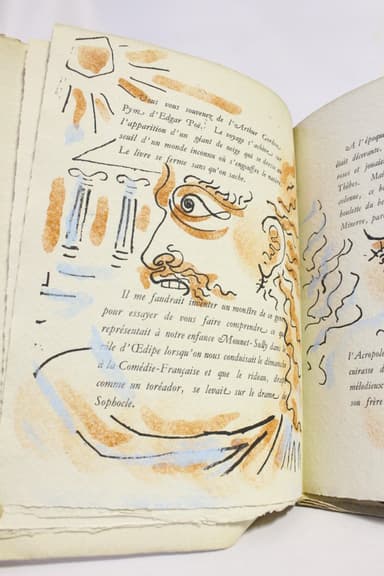 Vous vous souvenez de l'Arthur Gordon
Pym, d'Edgar Poë. Le voyage s'achève sur
l'apparition d'un géant de neige qui se dresse au
seuil d'un monde inconnu où s'engouffre le navire.
Le livre se ferme sans qu'on sache.
Il me faudrait inventer un monstre de ce genre
pour essayer de vous faire comprendre ce que
représentait à notre enfance Mounet-Sully dans
rôle d'Œdipe lorsqu'on nous conduisait le dimanche
à la Comédie-Française et que le rideau,
comme un toréador, se levait sur le drame
Sophocle.
A l'époque
était décevante,
poses et
Thèbes.
colonne, ce
houlette du
Minerve,
l'Acropole
cuirasse d
mélodieux
son frère